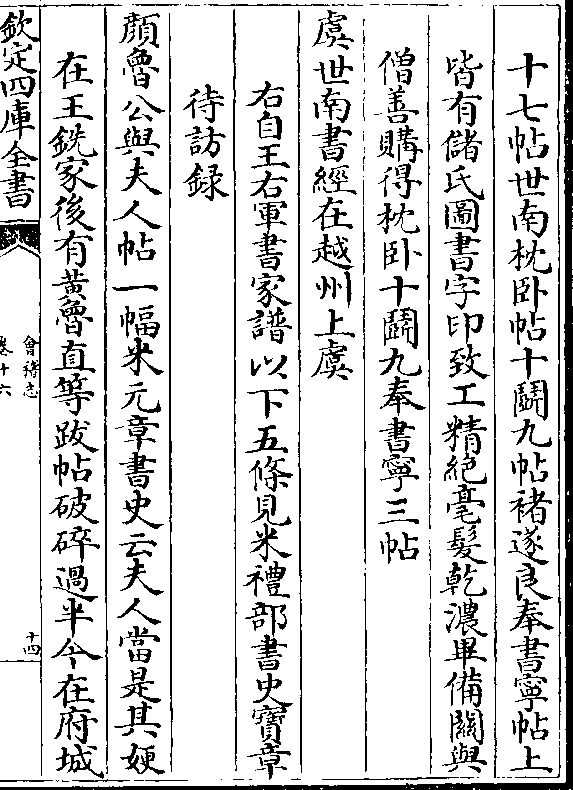 十七帖世南枕卧帖十鬬九帖褚遂良奉書寧帖上
皆有儲氏圖書字印致工精絶毫髮乾濃畢備闗與
僧善購得枕卧十鬬九奉書寧三帖
虞世南書經在越州上虞
右自王右軍書家譜以下五條見米禮部書史寶章
待訪録
顔魯公與夫人帖一幅米元章書史云夫人當是其㛐
在王銑家後有黄魯直等跋帖破碎過半今在府城
欽定四庫全書
會稽志
卷十六
十四